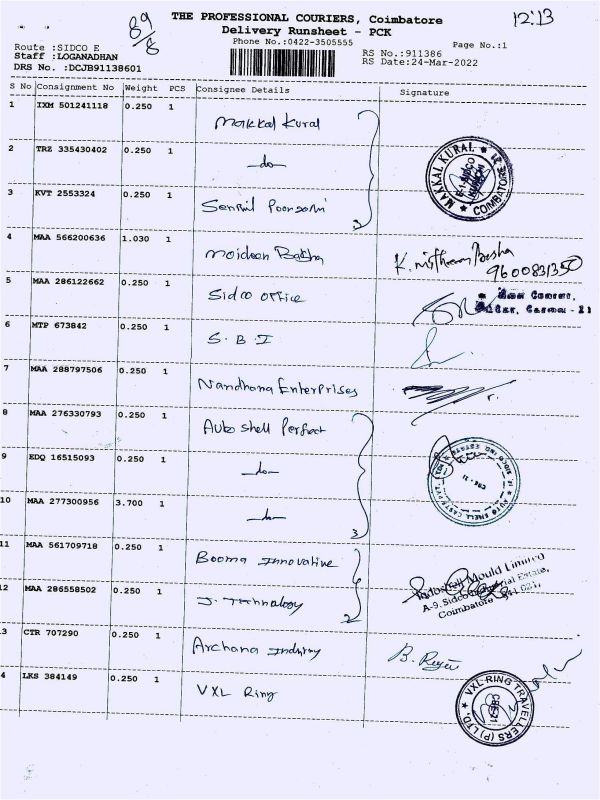 89/8
THE PROFESSIONAL COURIERS, Coimbatore
12:13
Delivery Runsheet - PCK
Phone No.:0422-3505555
Page No.:1
Route :SIDCO E
RS No.:911386
Staff :LOGANADHAN
RS Date:24-Mar-2022
DRS No. :DCJB91138601
S No Consignment No Weight PCS Consignee Details Signature
1 IXM 501241118 0.250 1 Makkal Kural
MAKKAL KURAL COIMBATORE
2 TRZ 335430402 0.250 1 -do-
3 KVT 2553324 0.250 1 Senthil
3
4 MAA 566200636 1.030 1 Moideen Batsha
9600831350
5 MAA 286122662 0.250 1 Sidco office
கிளை மேலாளர்,
சிட்கோ, கோவை - 21
6 MTP 673842 0.250 1 S.B.I
7 MAA 288797506 0.250 1 Nandhana Enterprises
8 MAA 276330793 0.250 1 Auto shell Perfect
9 EDQ 16515093 0.250 1 -do-
10 MAA 277300956 3.700 1 -do-
3
11 MAA 561709718 0.250 1 Booma Innovative
Indoshell Mould Limited
A-9, Sidco Industrial Estate,
Coimbatore 641 021.
12 MAA 286558502 0.250 1 J. Technology
2
3 CTR 707290 0.250 1 Archana Industry
4 LKS 384149 0.250 1 VXL Ring
VXL-RING TRAVELLERS (P) LTD.
CBE-21